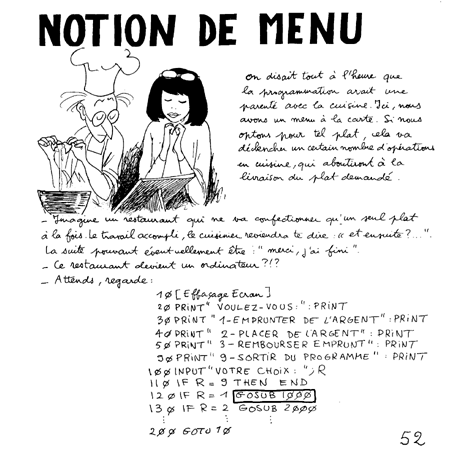 NOTION DE MENU
On disait tout à l'heure que
la programmation avait une
parenté avec la cuisine. Ici, nous
avons un menu à la carte. Si nous
optons pour tel plat, cela va
déclencher un certain nombre d'opérations
en cuisine, qui aboutiront à la
livraison du plat demandé.
- Imagine un restaurant qui ne va confectionner qu'un seul plat
à la fois. Le travail accompli, le cuisinier reviendra te dire : "et ensuite?...".
La suite pouvant éventuellement être : "merci, j'ai fini".
- Ce restaurant devient un ordinateur ?!?
- Attends, regarde :
10 [Effaçage Ecran]
20 PRINT "VOULEZ-VOUS:" : PRINT
30 PRINT "1-EMPRUNTER DE L'ARGENT" : PRINT
40 PRINT "2-PLACER DE L'ARGENT" : PRINT
50 PRINT "3-REMBOURSER EMPRUNT" : PRINT
90 PRINT "9-SORTIR DU PROGRAMME" : PRINT
100 INPUT "VOTRE CHOIX : "; R
110 IF R = 9 THEN END
120 IF R = 1 GOSUB 1000
130 IF R = 2 GOSUB 2000
200 GOTO 10
52